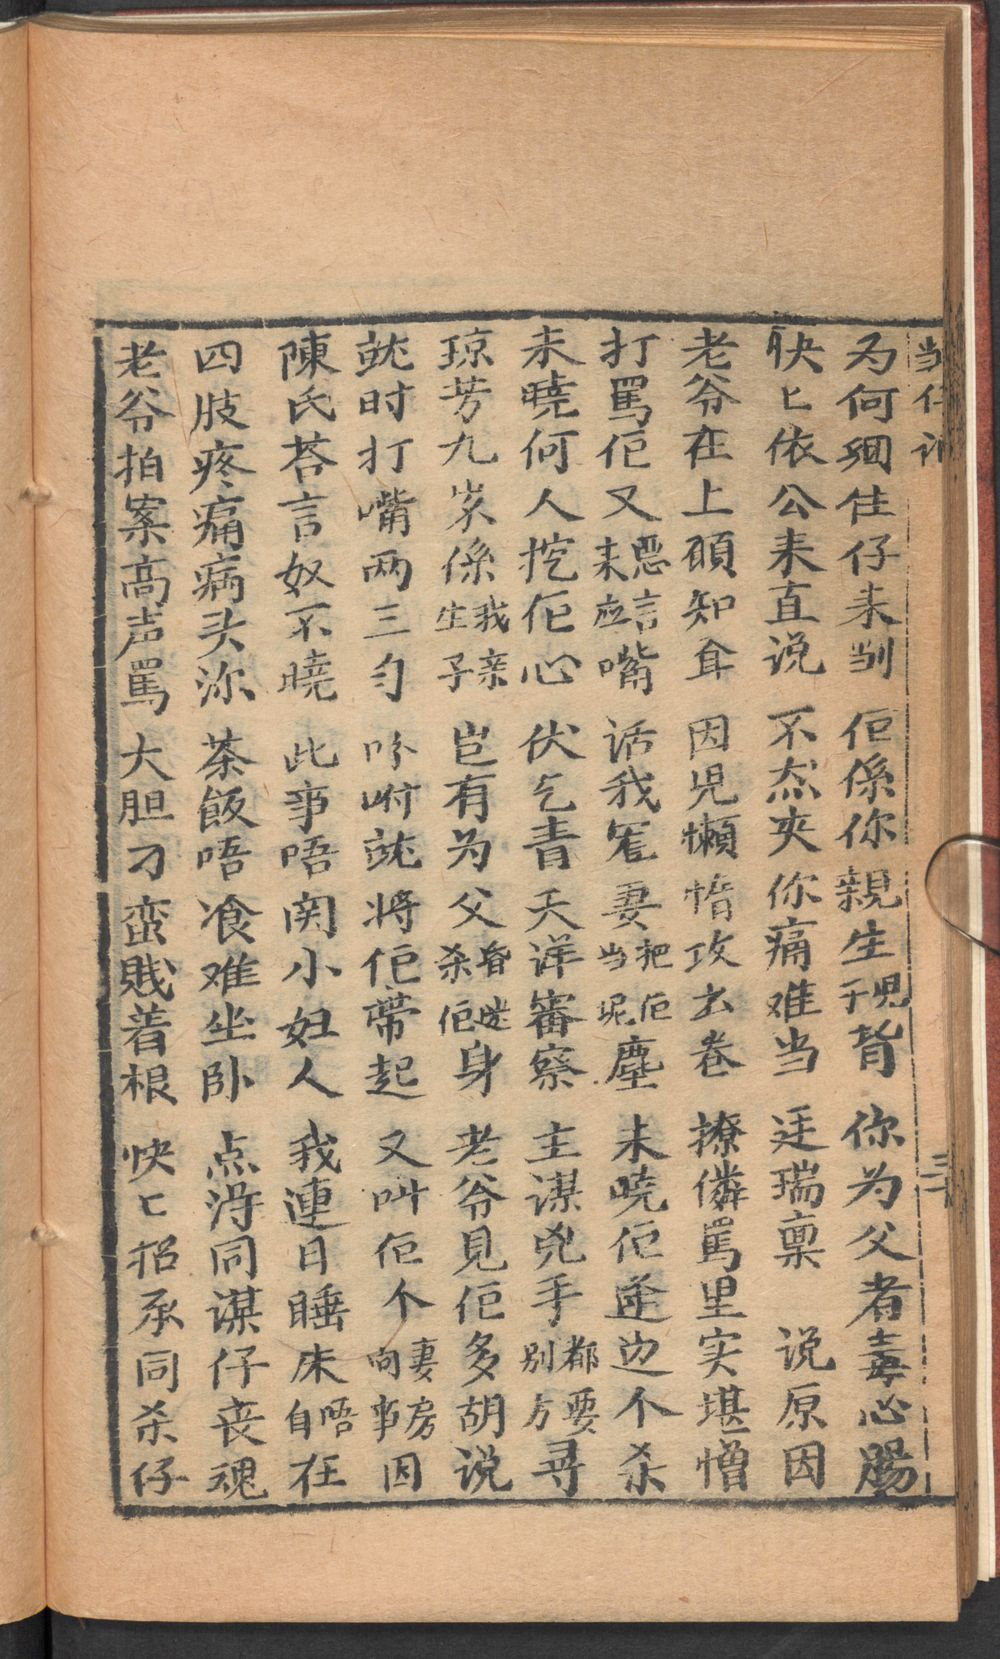 当仔
为何綑住仔来㓥 佢係你親生児子背 你为父者毒心腸
快匕依公来直说 不然夾你痛难当 廷瑞禀说原因
老爷在上頋知耷 因児懒惰攻玄卷 撩憐罵里实堪憎
打罵佢又恶言未应嘴 话我冤妻把佢当坭塵 未曉佢逆边个杀
未曉何人挖佢心 伏乞青天详審察 主谋兇手都要别方尋
琼芳九岁係我亲生子 岂有为父昏迷杀佢身 老爷見佢多胡说
就时打嘴两三勻 吩咐就将佢帶起 又叫佢个妻房向事因
陳氏荅言奴不曉 此事唔関小妇人 我連日睡床唔自在
四肢疼痛病头沵 茶飯唔飡难坐卧 点淂同谋仔丧魂
老爷拍案高声罵 大胆刁蛮賎着根 快匕招承同杀仔